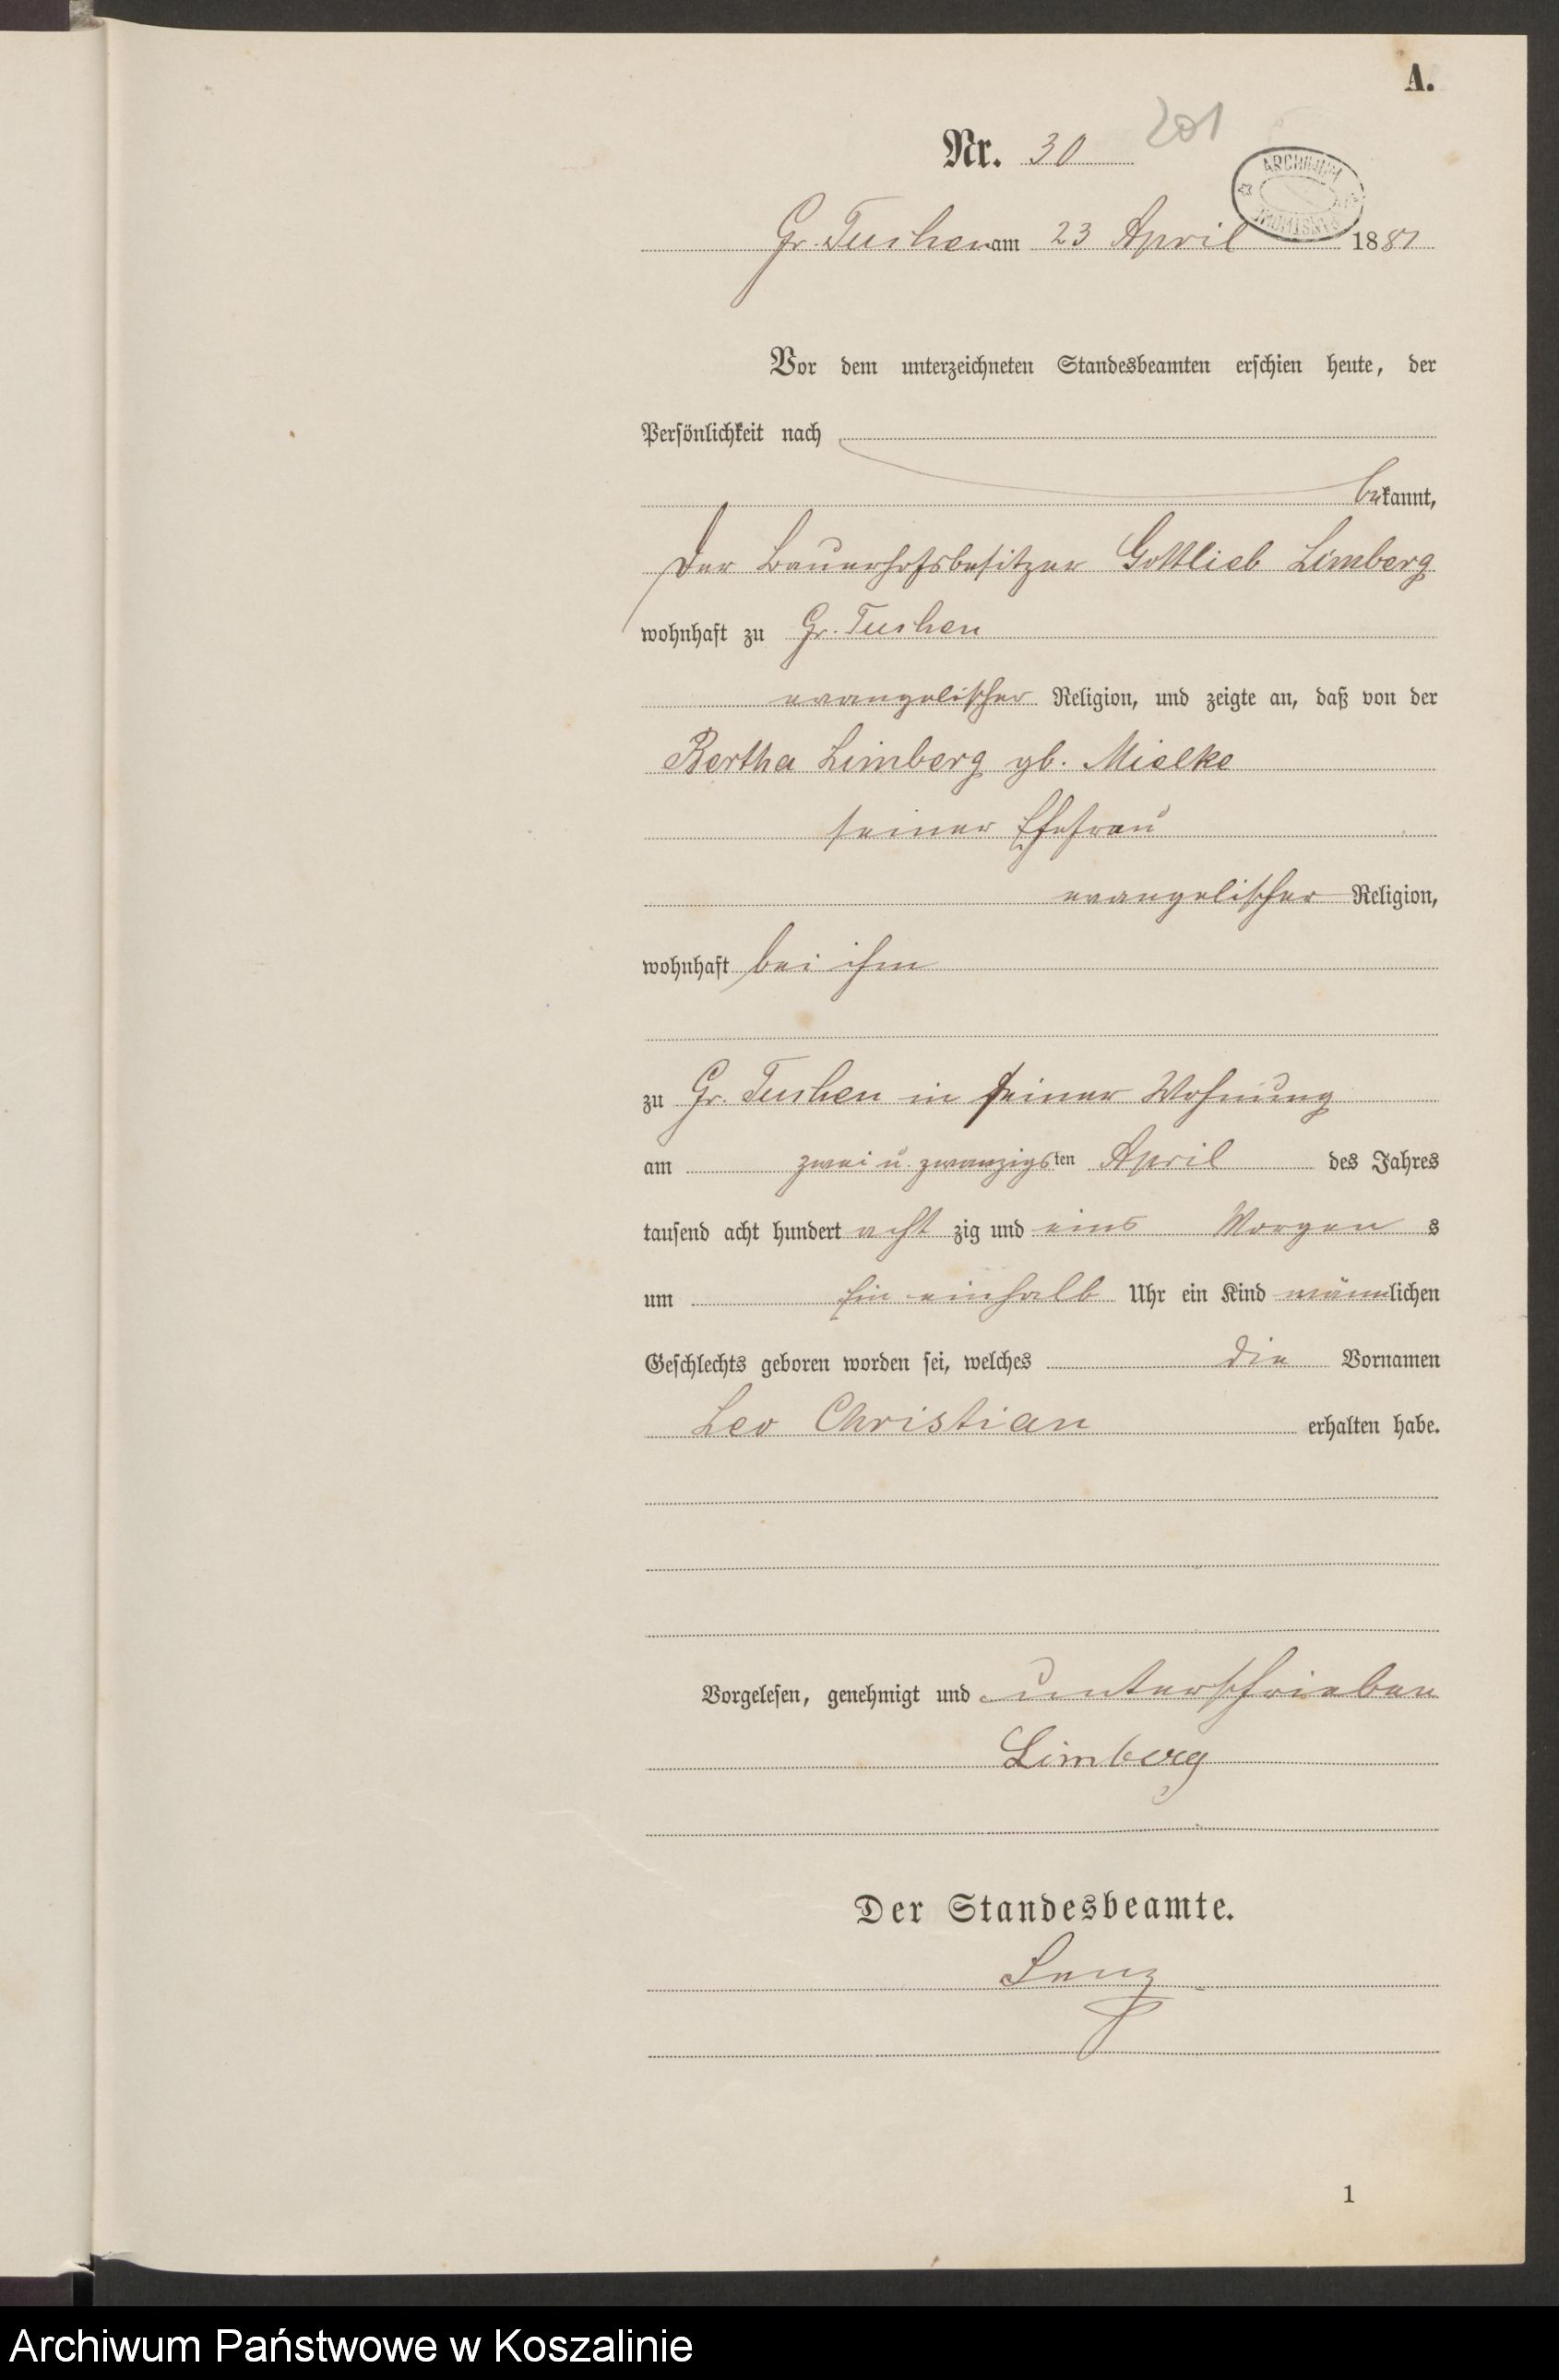 A.
Nr. 30
201
ARCHIWUM PAŃSTWOWE
Gr. Tuchen am 23 April 1881
Vor dem unterzeichneten Standesbeamten erschien heute, der
Persönlichkeit nach
bekannt,
der Bauerhofsbesitzer Gottlieb Limberg
wohnhaft zu Gr. Tuchen
evangelischer Religion, und zeigte an, daß von der
Bertha Limberg gb. Mielke
seiner Ehefrau
evangelischer Religion,
wohnhaft bei ihm
zu Gr. Tuchen in seiner Wohnung
am zwei u. zwanzigsten April des Jahres
tausend acht hundert acht zig und eins Morgens
um ein einhalb Uhr ein Kind männlichen
Geschlechts geboren worden sei, welches die Vornamen
Leo Christian erhalten habe.
Vorgelesen, genehmigt und unterschrieben
Limberg
Der Standesbeamte.
Lenz
1
Archiwum Państwowe w Koszalinie